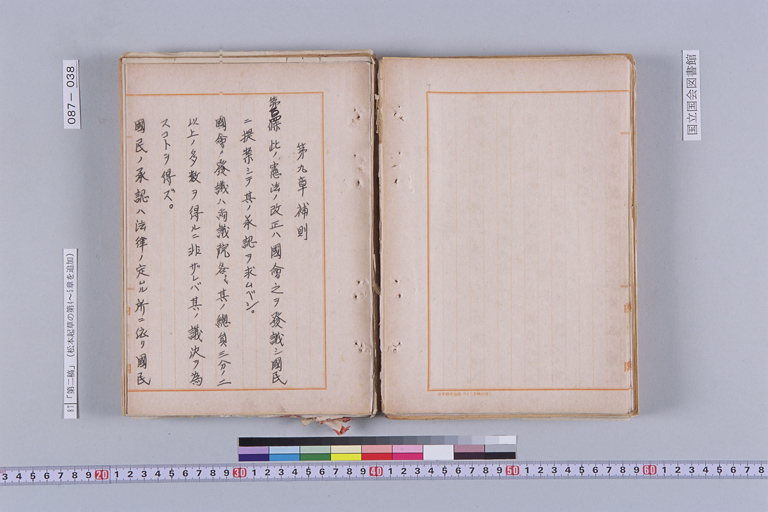 国立国会図書館
087—038
87 「第二稿」（松本起草の第1～5章を追加）
第九章 補則
此ノ憲法ノ改正ハ國會之ヲ發議シ國民
ニ提案シテ其ノ承認ヲ求ムベシ。
國會ノ發議ハ兩議院各々其ノ總員三分ノ二
以上ノ多数ヲ得ルニ非ザレバ其ノ議決ヲ為
スコトヲ得ズ。
國民ノ承認ハ法律ノ定ムル所ニ依リ國民
3 4 5 6 7 8 9 20 1 2 3 4 5 6 7 8 9 30 1 2 3 4 5 6 7 8 9 40 1 2 3 4 5 6 7 8 9 50 1 2 3 4 5 6 7 8 9 60 1 2 3 4 5 6 7 8